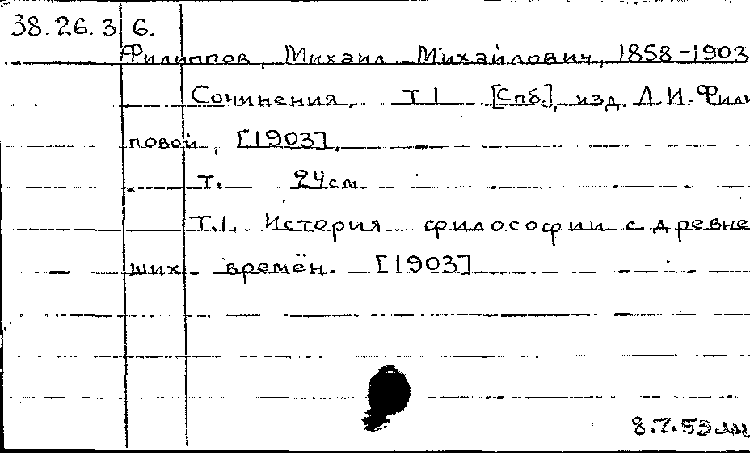 38.26.3 6.
Филиппов, Михаил Михайлович, 1858-1903
Сочинения. Т 1 [Спб.], изд. Л.И. Фили
повой, [1903].
т. 24 см
Т.1. История философии с древне
ших времён. [1903]
8.7.53